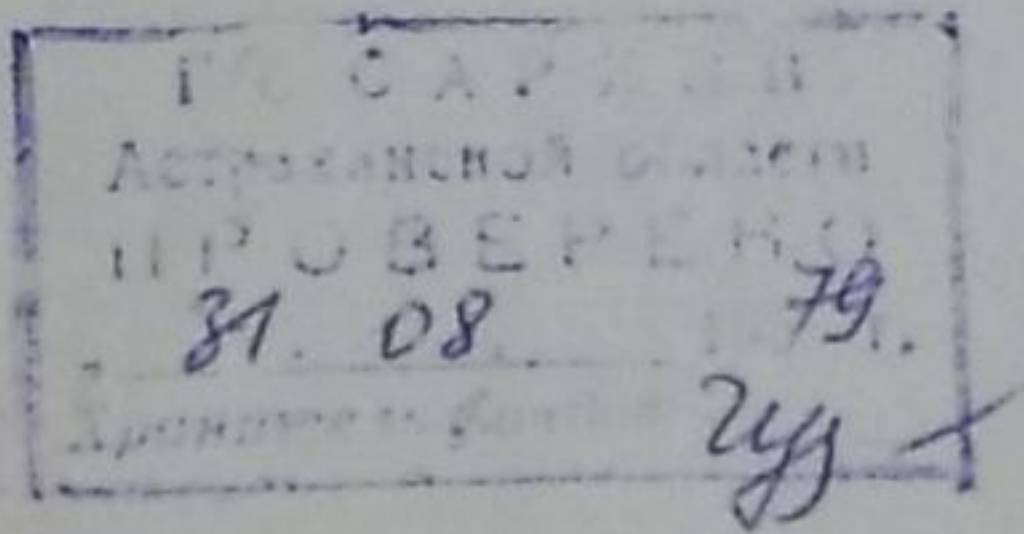 ГОСАРХИВ
Астраханской области
ПРОВЕРЕНО
31 08 79.
Хранитель фондов